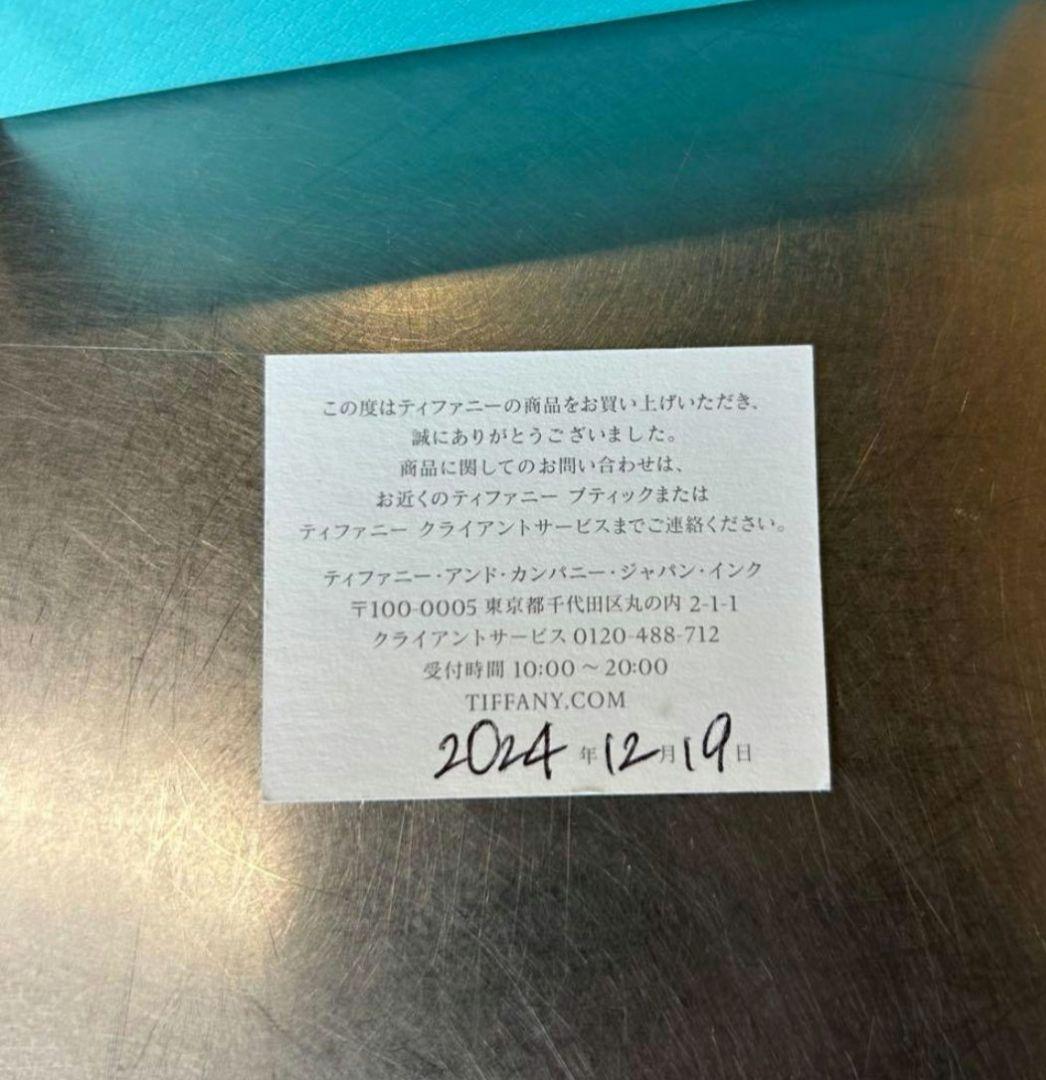 この度はティファニーの商品をお買い上げいただき、
誠にありがとうございました。
商品に関してのお問い合わせは、
お近くのティファニー ブティックまたは
ティファニー クライアントサービスまでご連絡ください。
ティファニー・アンド・カンパニー・ジャパン・インク
〒100-0005 東京都千代田区丸の内 2-1-1
クライアントサービス 0120-488-712
受付時間 10:00 ~ 20:00
TIFFANY.COM
2024 年 12 月 19 日